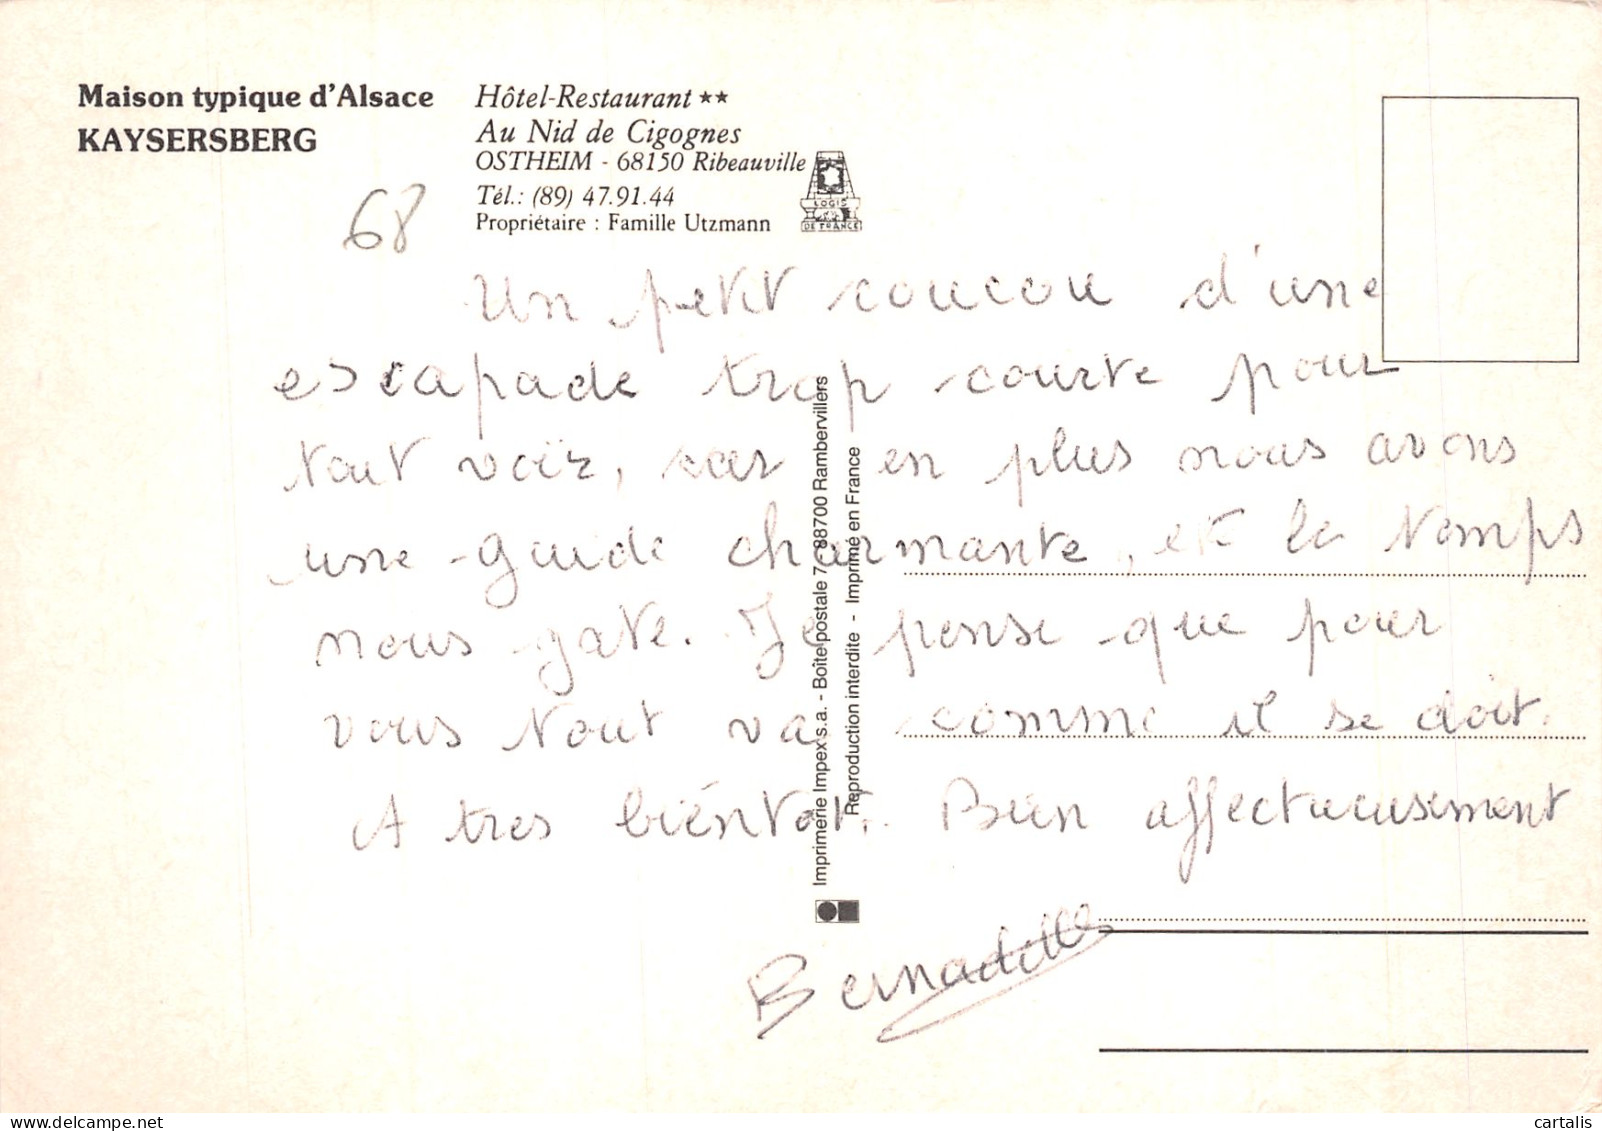 Maison typique d'Alsace
KAYSERSBERG
Hôtel-Restaurant ★★
Au Nid de Cigognes
OSTHEIM - 68150 Ribeauville
Tél.: (89) 47.91.44
Propriétaire : Famille Utzmann
LOGIS
DE FRANCE
68
Un petit coucou d'une
escapade trop courte pour
tout voir, car en plus nous avons
une guide charmante, et le temps
nous gate. Je pense que pour
vous tout va comme il se doit.
A tres bientot. Bien affectueusement
Bernadette
Imprimerie Impex s.a. - Boîte postale 7 - 88700 Rambervillers
Reproduction interdite - Imprimé en France
cartalis